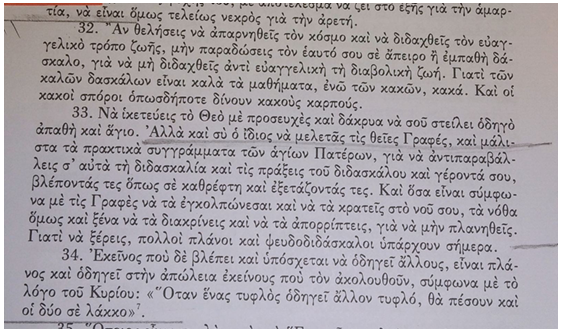 τία, νὰ εἶναι ὅμως τελείως νεκρὸς γιὰ τὴν ἀρετή.
32. Ἂν θελήσεις νὰ ἀπαρνηθεῖς τὸν κόσμο καὶ νὰ διδαχθεῖς τὸν εὐαγ-
γελικὸ τρόπο ζωῆς, μὴν παραδώσεις τὸν ἑαυτό σου σὲ ἄπειρο ἢ ἐμπαθὴ δά-
σκαλο, γιὰ νὰ μὴ διδαχθεῖς ἀντὶ εὐαγγελικὴ τὴ διαβολικὴ ζωή. Γιατὶ τῶν
καλῶν δασκάλων εἶναι καλὰ τὰ μαθήματα, ἐνῶ τῶν κακῶν, κακά. Καὶ οἱ
κακοὶ σπόροι ὁπωσδήποτε δίνουν κακοὺς καρπούς.
33. Νὰ ἱκετεύεις τὸ Θεὸ μὲ προσευχὲς καὶ δάκρυα νὰ σοῦ στείλει ὁδηγὸ
ἀπαθὴ καὶ ἅγιο. Ἀλλὰ καὶ σὺ ὁ ἴδιος νὰ μελετᾶς τὶς θεῖες Γραφές, καὶ μάλι-
στα τὰ πρακτικὰ συγγράμματα τῶν ἁγίων Πατέρων, γιὰ νὰ ἀντιπαραβάλ-
λεις σ' αὐτὰ τὴ διδασκαλία καὶ τὶς πράξεις τοῦ διδασκάλου καὶ γέροντά σου,
βλέποντάς τες ὅπως σὲ καθρέφτη καὶ ἐξετάζοντάς τες. Καὶ ὅσα εἶναι σύμφω-
να μὲ τὶς Γραφὲς νὰ τὰ ἐγκολπώνεσαι καὶ νὰ τὰ κρατεῖς στὸ νοῦ σου, τὰ νόθα
ὅμως καὶ ξένα νὰ τὰ διακρίνεις καὶ νὰ τὰ ἀπορρίπτεις, γιὰ νὰ μὴν πλανηθεῖς.
Γιατὶ νὰ ξέρεις, πολλοὶ πλάνοι καὶ ψευδοδιδάσκαλοι ὑπάρχουν σήμερα.
34. Ἐκεῖνος ποὺ δὲ βλέπει καὶ ὑπόσχεται νὰ ὁδηγεῖ ἄλλους, εἶναι πλά-
νος καὶ ὁδηγεῖ στὴν ἀπώλεια ἐκείνους ποὺ τὸν ἀκολουθοῦν, σύμφωνα μὲ τὸ
λόγο τοῦ Κυρίου: «Ὅταν ἕνας τυφλὸς ὁδηγεῖ ἄλλον τυφλό, θὰ πέσουν καὶ
οἱ δύο σὲ λάκκο»⁷.